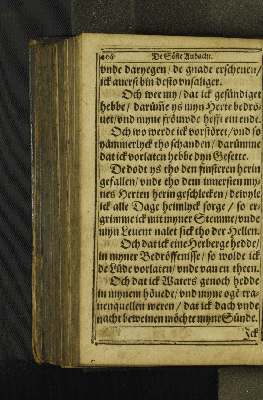 De Söste Andacht.
vnde daryegen / de gnade erschenen /
ick auerst bin desto vnsaliger.
Och wee my / dat ick gesündiget
hebbe / darüm̃e ys myn Herte bedrö-
uet / vnd myne fröuwde hefft ein ende.
Och wo werde ick vorstöret / vnd so
yämmerlyck tho schanden / darümme
dat ick vorlaten hebbe dyn Gesette.
De dodt ys tho den finsteren herin
gefallen / vnde tho dem innersten my-
nes Herten herin geschlecken / dewyle
ick alle Dage heimlyck sorge / so er-
grimme ick mit myner Stemme / vnde
myn Leuent nalet sick tho der Hellen.
Och dat ick eine Herberge hedde /
in myner Bedröffenisse / so wolde ick
de Lüde vorlaten / vnde van en theen.
Och dat ick Waters genoch hedde
in mynem höuede / vnd myne ogē tra-
nenquellen weren / dat ick dach vnde
nacht beweinen möchte myne Sünde.
Ick